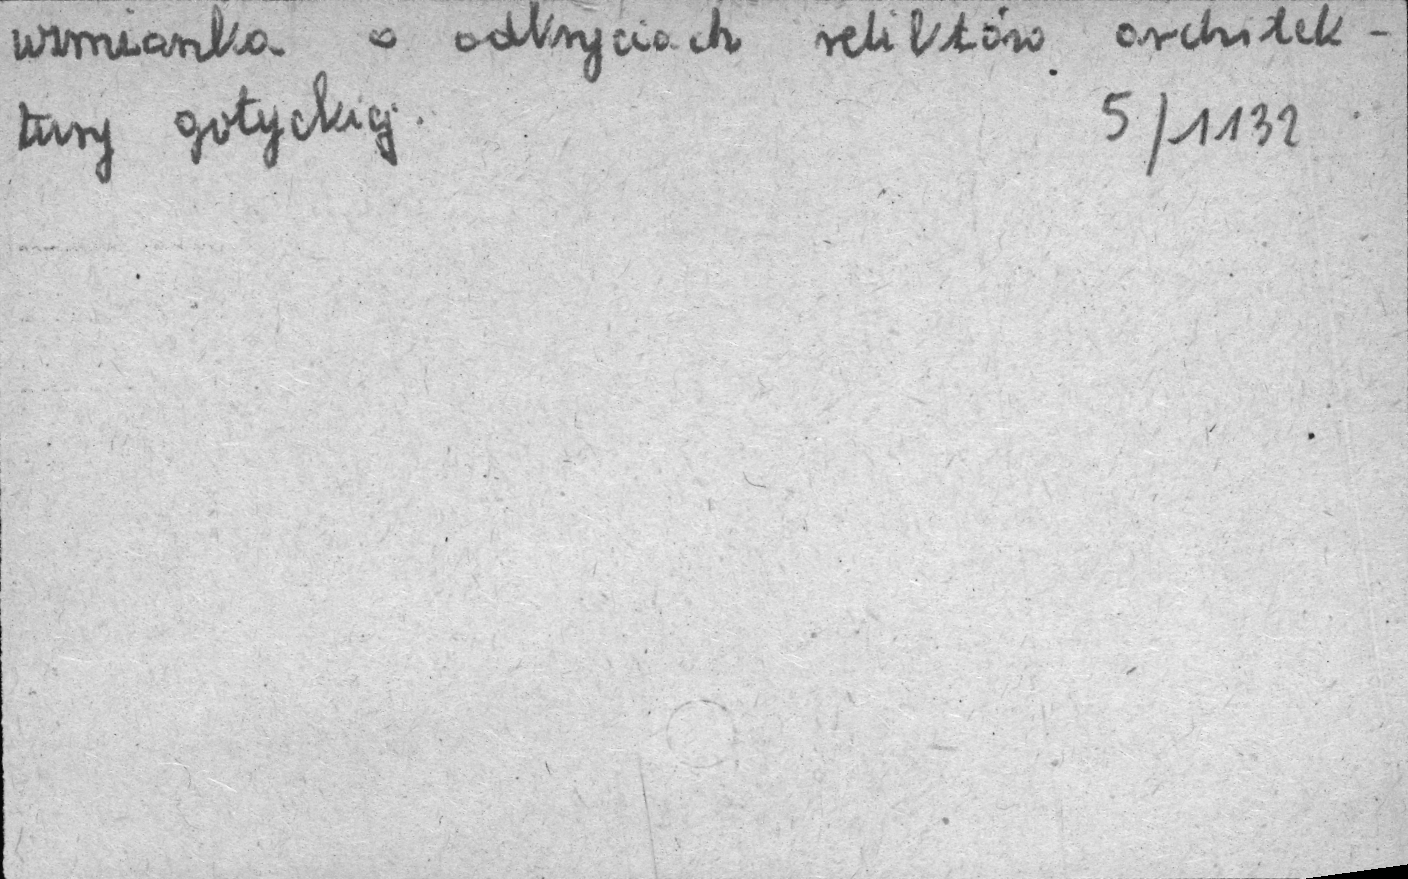 wzmianka o odkryciach reliktów architek-
tury gotyckiej. 5/1132